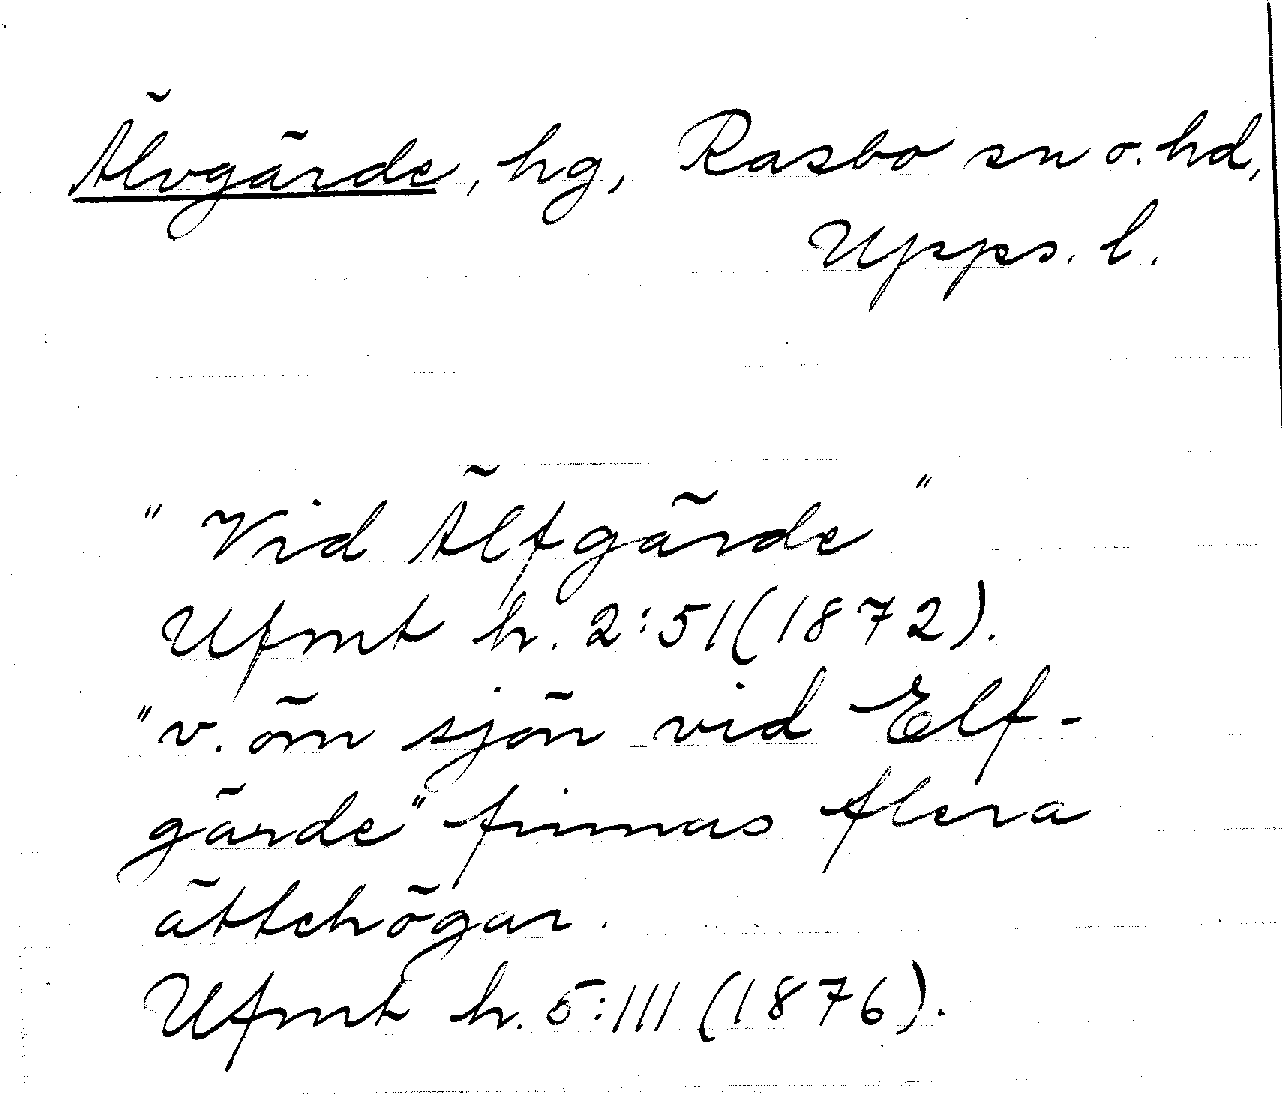 Älvgärde, hg, Rasbo sn o. hd,
Upps. l.
"Vid Älfgärde"
Ufmt h. 2:51 (1872).
"v. om sjön vid Elf-
gärde" finnas flera
ättehögar.
Ufmt h. 5:111 (1876).